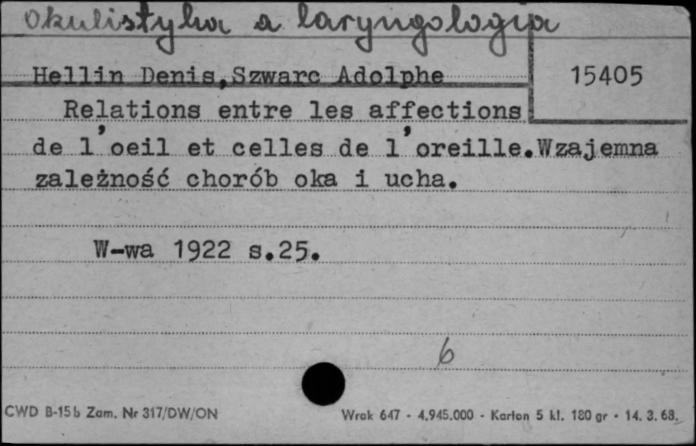 Okulistyka a laryngologia
Hellin Denis,Szwarc Adolphe
15405
Relations entre les affections
de l'oeil et celles de l'oreille.Wzajemna
zależność chorób oka i ucha.
W-wa 1922 s.25.
6
CWD B-15b Zam. Nr 317/DW/ON
Wrak 647 - 4.945.000 - Karton 5 kl. 180 gr - 14. 3. 68.